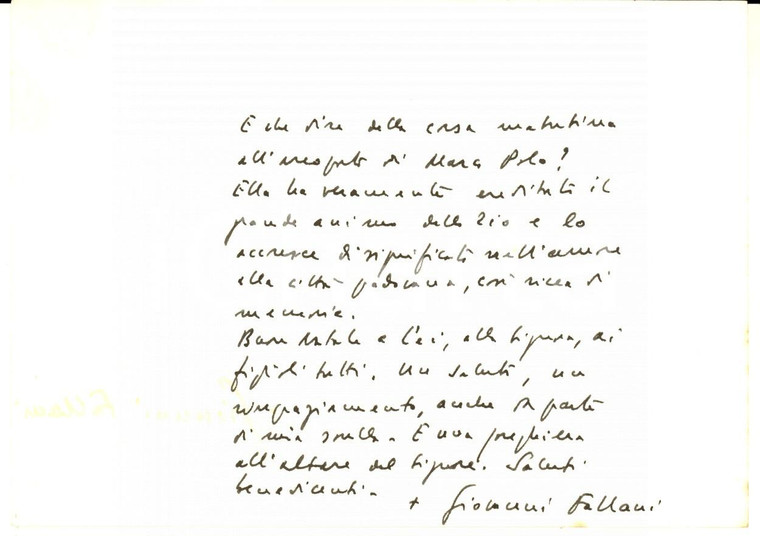 E che dire della corsa mattutina
all'areoporto di Marco Polo?
Ella ha veramente ereditato il
grande animo dello Zio e lo
accresce di significato nell'amore
alla città padovana, così ricca di
memorie.
Buon Natale a Lei, alla Signora, ai
figli tutti. Un saluto, un
ringraziamento, anche da parte
di mia sorella. E una preghiera
all'altare del Signore. Saluti
benedicenti.
+ Giovanni Fallani